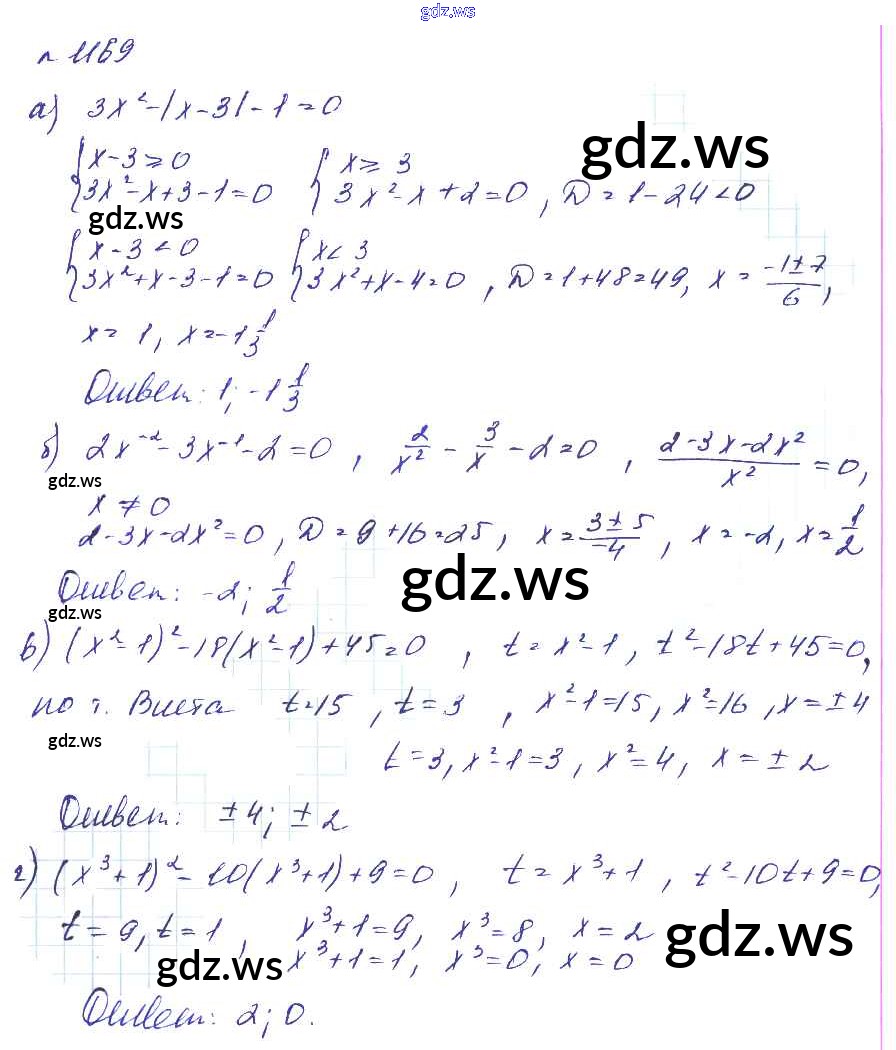 gdz.ws
п. 1169
а) 3x² - |x - 3| - 1 = 0
{x - 3 ⩾ 0 {x ⩾ 3
{3x² - x + 3 - 1 = 0 {3x² - x + 2 = 0, D = 1 - 24 < 0
gdz.ws
gdz.ws
{x - 3 < 0 {x < 3
{3x² + x - 3 - 1 = 0 {3x² + x - 4 = 0, D = 1 + 48 = 49, x = (-1 ± 7)/6,
x = 1, x = -1 1/3
Ответ: 1; -1 1/3
б) 2x⁻² - 3x⁻¹ - 2 = 0, 2/x² - 3/x - 2 = 0, (2 - 3x - 2x²)/x² = 0,
gdz.ws
x ≠ 0
2 - 3x - 2x² = 0, D = 9 + 16 = 25, x = (3 ± 5)/-4, x = -2, x = 1/2
Ответ: -2; 1/2
gdz.ws
gdz.ws
в) (x² - 1)² - 18(x² - 1) + 45 = 0, t = x² - 1, t² - 18t + 45 = 0,
по т. Виета t = 15, t = 3, x² - 1 = 15, x² = 16, x = ± 4
gdz.ws
t = 3, x² - 1 = 3, x² = 4, x = ± 2
Ответ: ± 4; ± 2
г) (x³ + 1)² - 10(x³ + 1) + 9 = 0, t = x³ + 1, t² - 10t + 9 = 0,
t = 9, t = 1, x³ + 1 = 9, x³ = 8, x = 2
x³ + 1 = 1, x³ = 0, x = 0
gdz.ws
gdz.ws
Ответ: 2; 0.